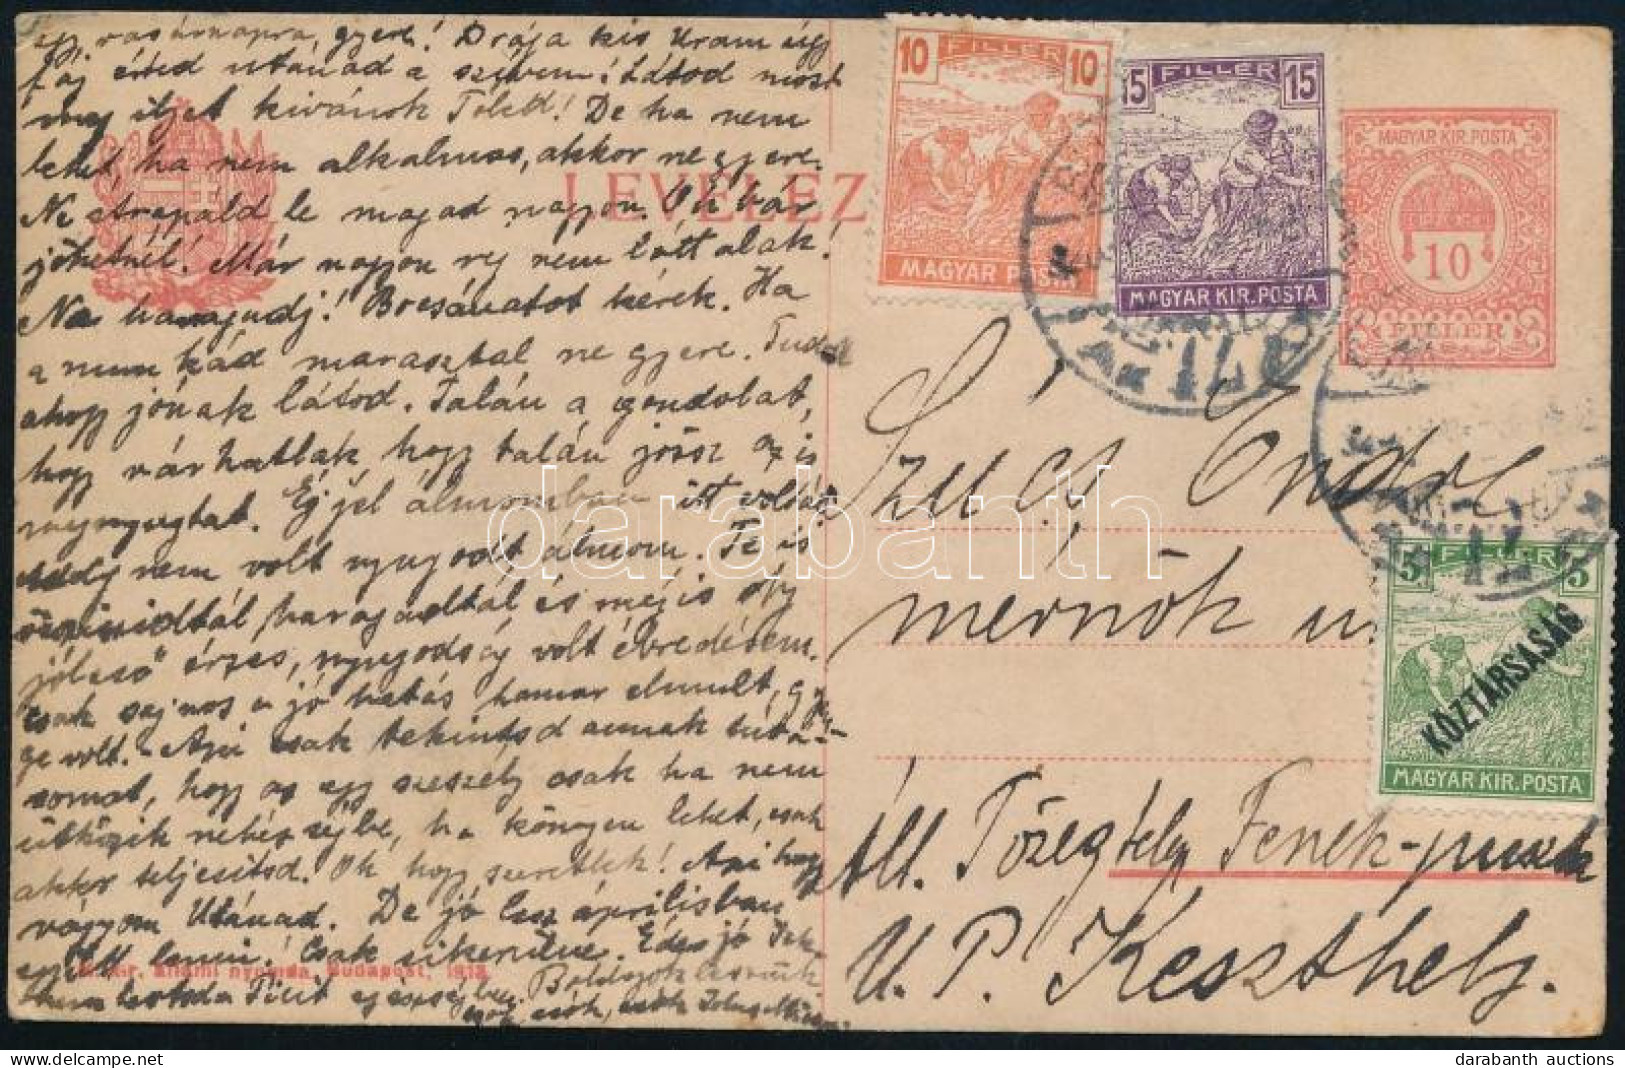 egy vasárnapra, gyere! Drága kis Uram úgy
fáj érted utánad a szivem! Látod most
meg ilyet kivánok Tőled! De ha nem
lehet, ha nem alkalmas, akkor ne gyere.
Ne strapáld le magad nagyon. Oh bár
jöhetnél! Már nagyon rég nem láttalak!
Na haragudj! Bocsánatot kérek. Ha
a nem kád marasztal ne gyere. Tudod
ahogy jónak látod. Talán a gondolat,
hogy várhatlak, hogy talán jössz az is
megnyugtat. Éjjel álmomban itt voltál
nem volt nyugodt álmom. Te is
haragudtál és mégis oly
jóleső érzés, nyugodság volt ébredésem.
csak sajnos a jó hatás hamar elmult, gyen-
ge volt. - Api csak tekintsd annak
somat, hogy ez egy szeszély csak ha nem
ütközik nehézségbe, ha könnyen lehet, csak
akkor teljesítsd. Oh hogy szeretlek! Api hogy
vágyom Utánad. De jó lesz áprilisban
együtt lenni! Csak sikerülne. Édes jó
Boldogok lesznek
csók, csók
M. kir. állami nyomda, Budapest, 1918.
LEVELEZ
10 FILLÉR 10
MAGYAR POSTA
15 FILLÉR 15
MAGYAR KIR. POSTA
MAGYAR KIR. POSTA
10
FILLÉR
Szücs Endre
mérnök u.
5 FILLÉR 5
KÖZTÁRSASÁG
MAGYAR KIR. POSTA
Áll. Tőzegtelep Fenék-puszta
U. P. Keszthely.
darabanth
darabanth auctions